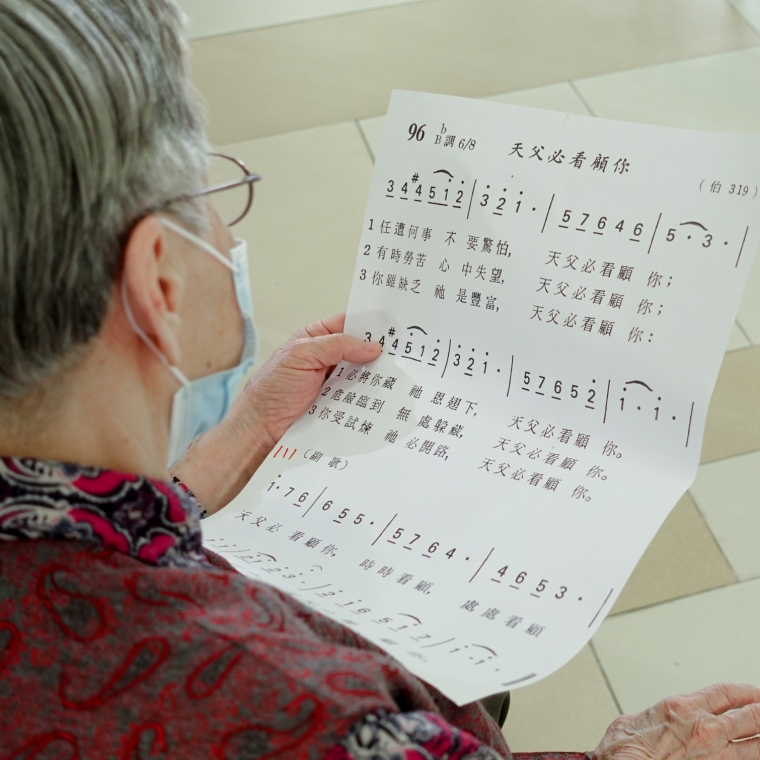 96 ♭B調 6/8 天父必看顧你
(伯 319)
3 4 #4 5 1 2 | 3 2 1· | 5 7 6 4 6 | 5· 3· |
1 任遭何事 不 要驚怕, 天父必看顧 你;
2 有時勞苦 心 中失望, 天父必看顧 你;
3 你雖缺乏 祂 是豐富, 天父必看顧 你:
3 4 #4 5 1 2 | 3 2 1· | 5 7 6 5 2 | 1· 1· |
1 必將你藏 祂 恩翅下, 天父必看顧 你。
2 危險臨到 無 處躲藏, 天父必看顧 你。
3 你受試煉 祂 必開路, 天父必看顧 你。
(副 歌)
1· 7 6 | 6 5 5· | 5 7 6 4· | 4 6 5 3· |
天父必 看顧你, 時時看顧, 處處看顧